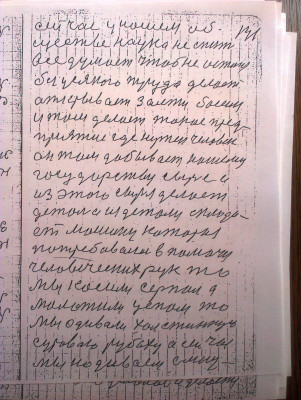 сичас у нашем об-
ществе наука не спит
все думает чтоб не
без всякого труда делает
открывает залежи
и там делает такое пред-
приятие где нужен человек
он там добывает нашему
государству сырье и
из этого сырья делает
детоля из детоли
ет машину которая
потребовала в помочи
человеческих рук то
мы косили серпом а
молотили цепом то
мы одивали холстинную
суровою рубаху а сичас
мы надиваем
141